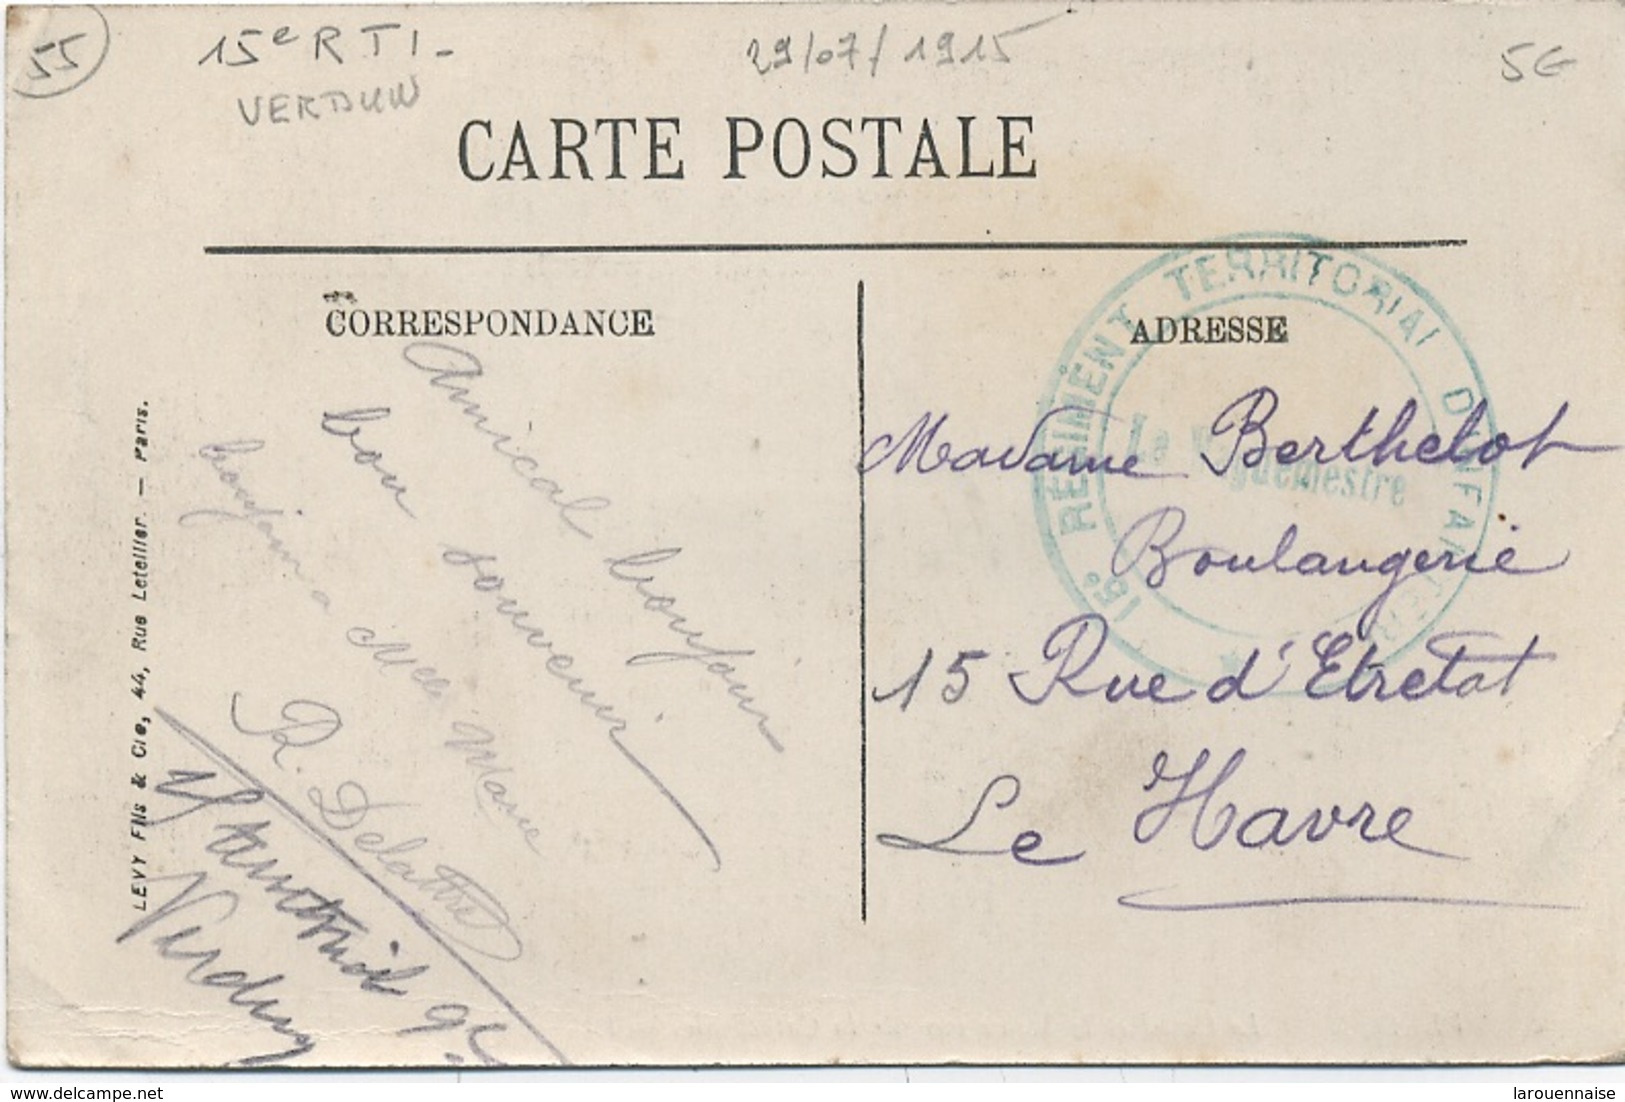 55
15e R T I -
VERDUN
29/07/1915
5€
CARTE POSTALE
CORRESPONDANCE
ADRESSE
15e RÉGIMENT TERRITORIAL D'INFANTERIE
Le Vaguemestre
Amical bonjour
bon souvenir
bonjour a Melle Marie
R. Delattre
Verdun
Madame Berthelot
Boulangerie
15 Rue d'Etretat
Le Havre
LEVY Fils & Cie, 44, Rue Letellier. — Paris.
larouennaise